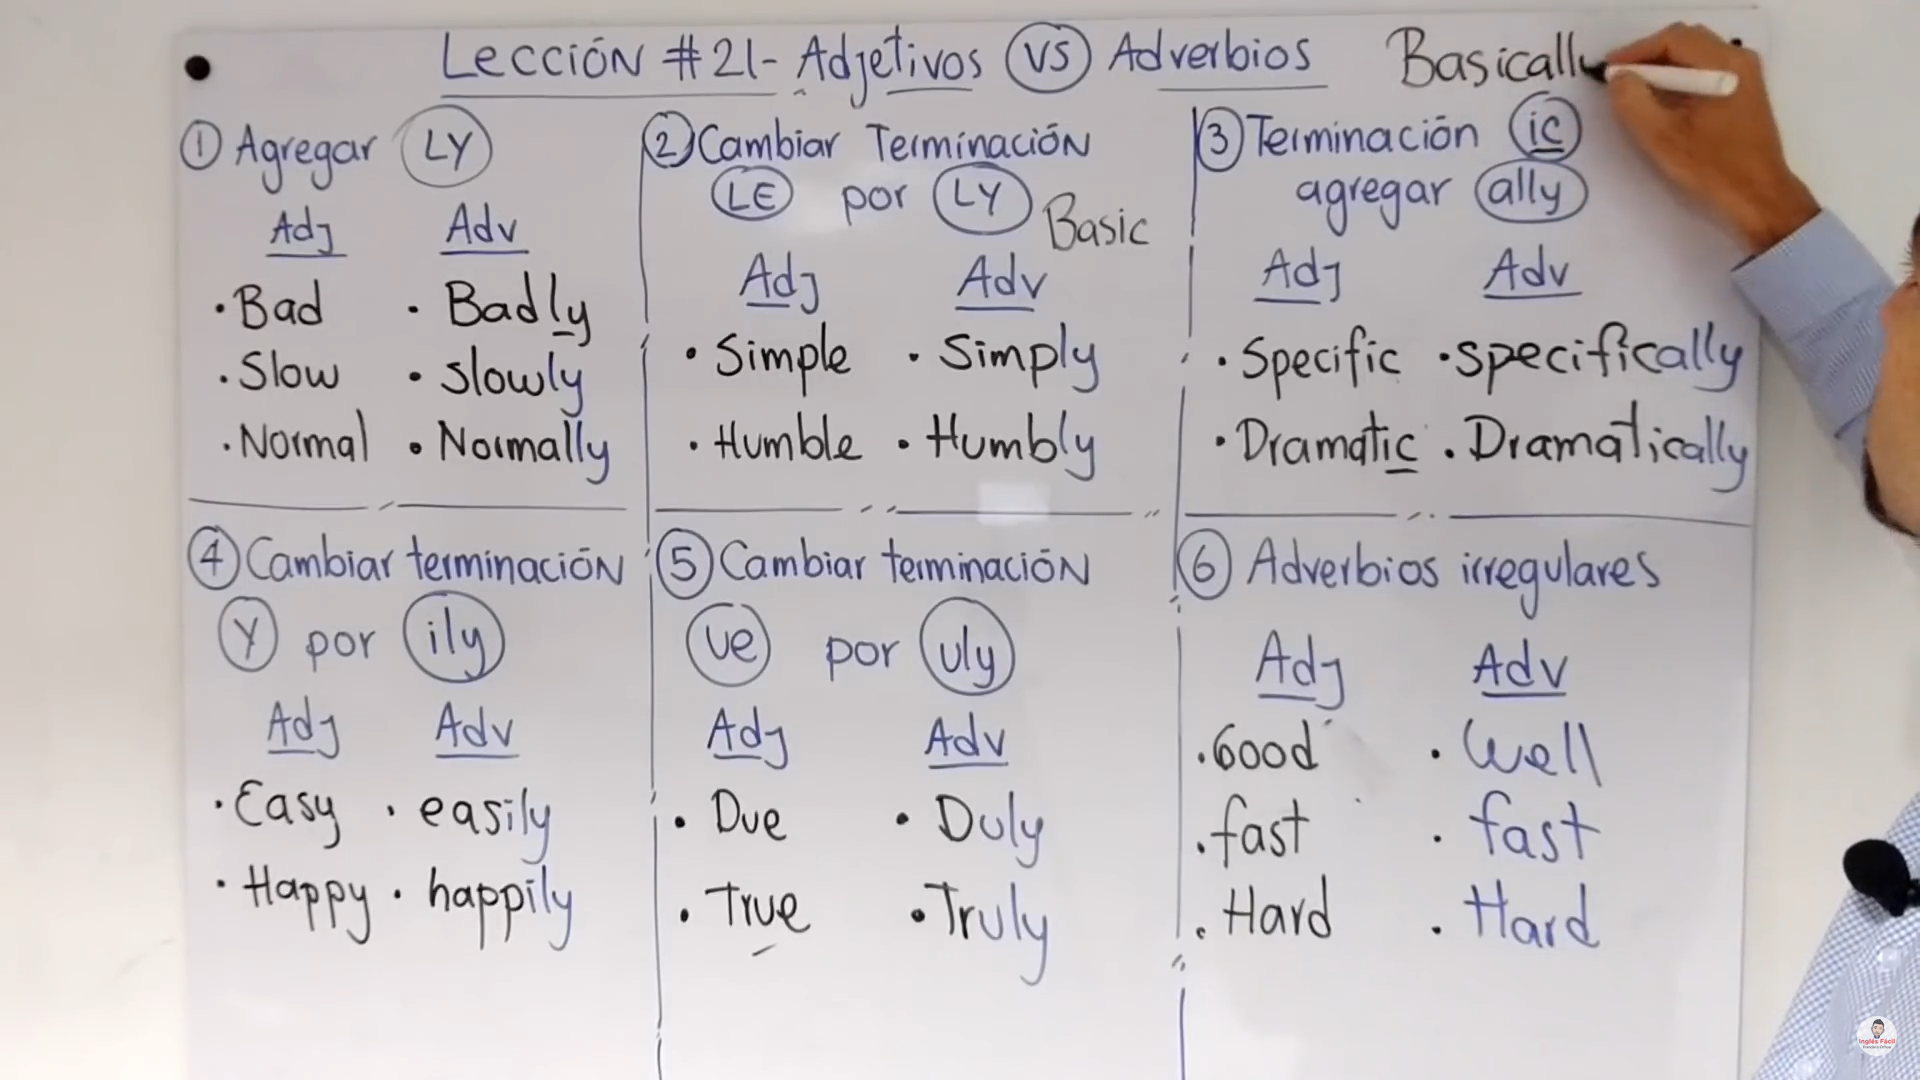 Lección #21- Adjetivos VS Adverbios
Basically
① Agregar LY
Adj Adv
• Bad • Badly
• Slow • slowly
• Normal • Normally
② Cambiar Terminación
LE por LY
Basic
Adj Adv
• Simple • Simply
• Humble • Humbly
③ Terminación ic
agregar ally
Adj Adv
• Specific • specifically
• Dramatic • Dramatically
④ Cambiar terminación
Y por ily
Adj Adv
• Easy • easily
• Happy • happily
⑤ Cambiar terminación
ue por uly
Adj Adv
• Due • Duly
• True • Truly
⑥ Adverbios irregulares
Adj Adv
• Good • Well
• fast • fast
• Hard • Hard
Inglés Fácil